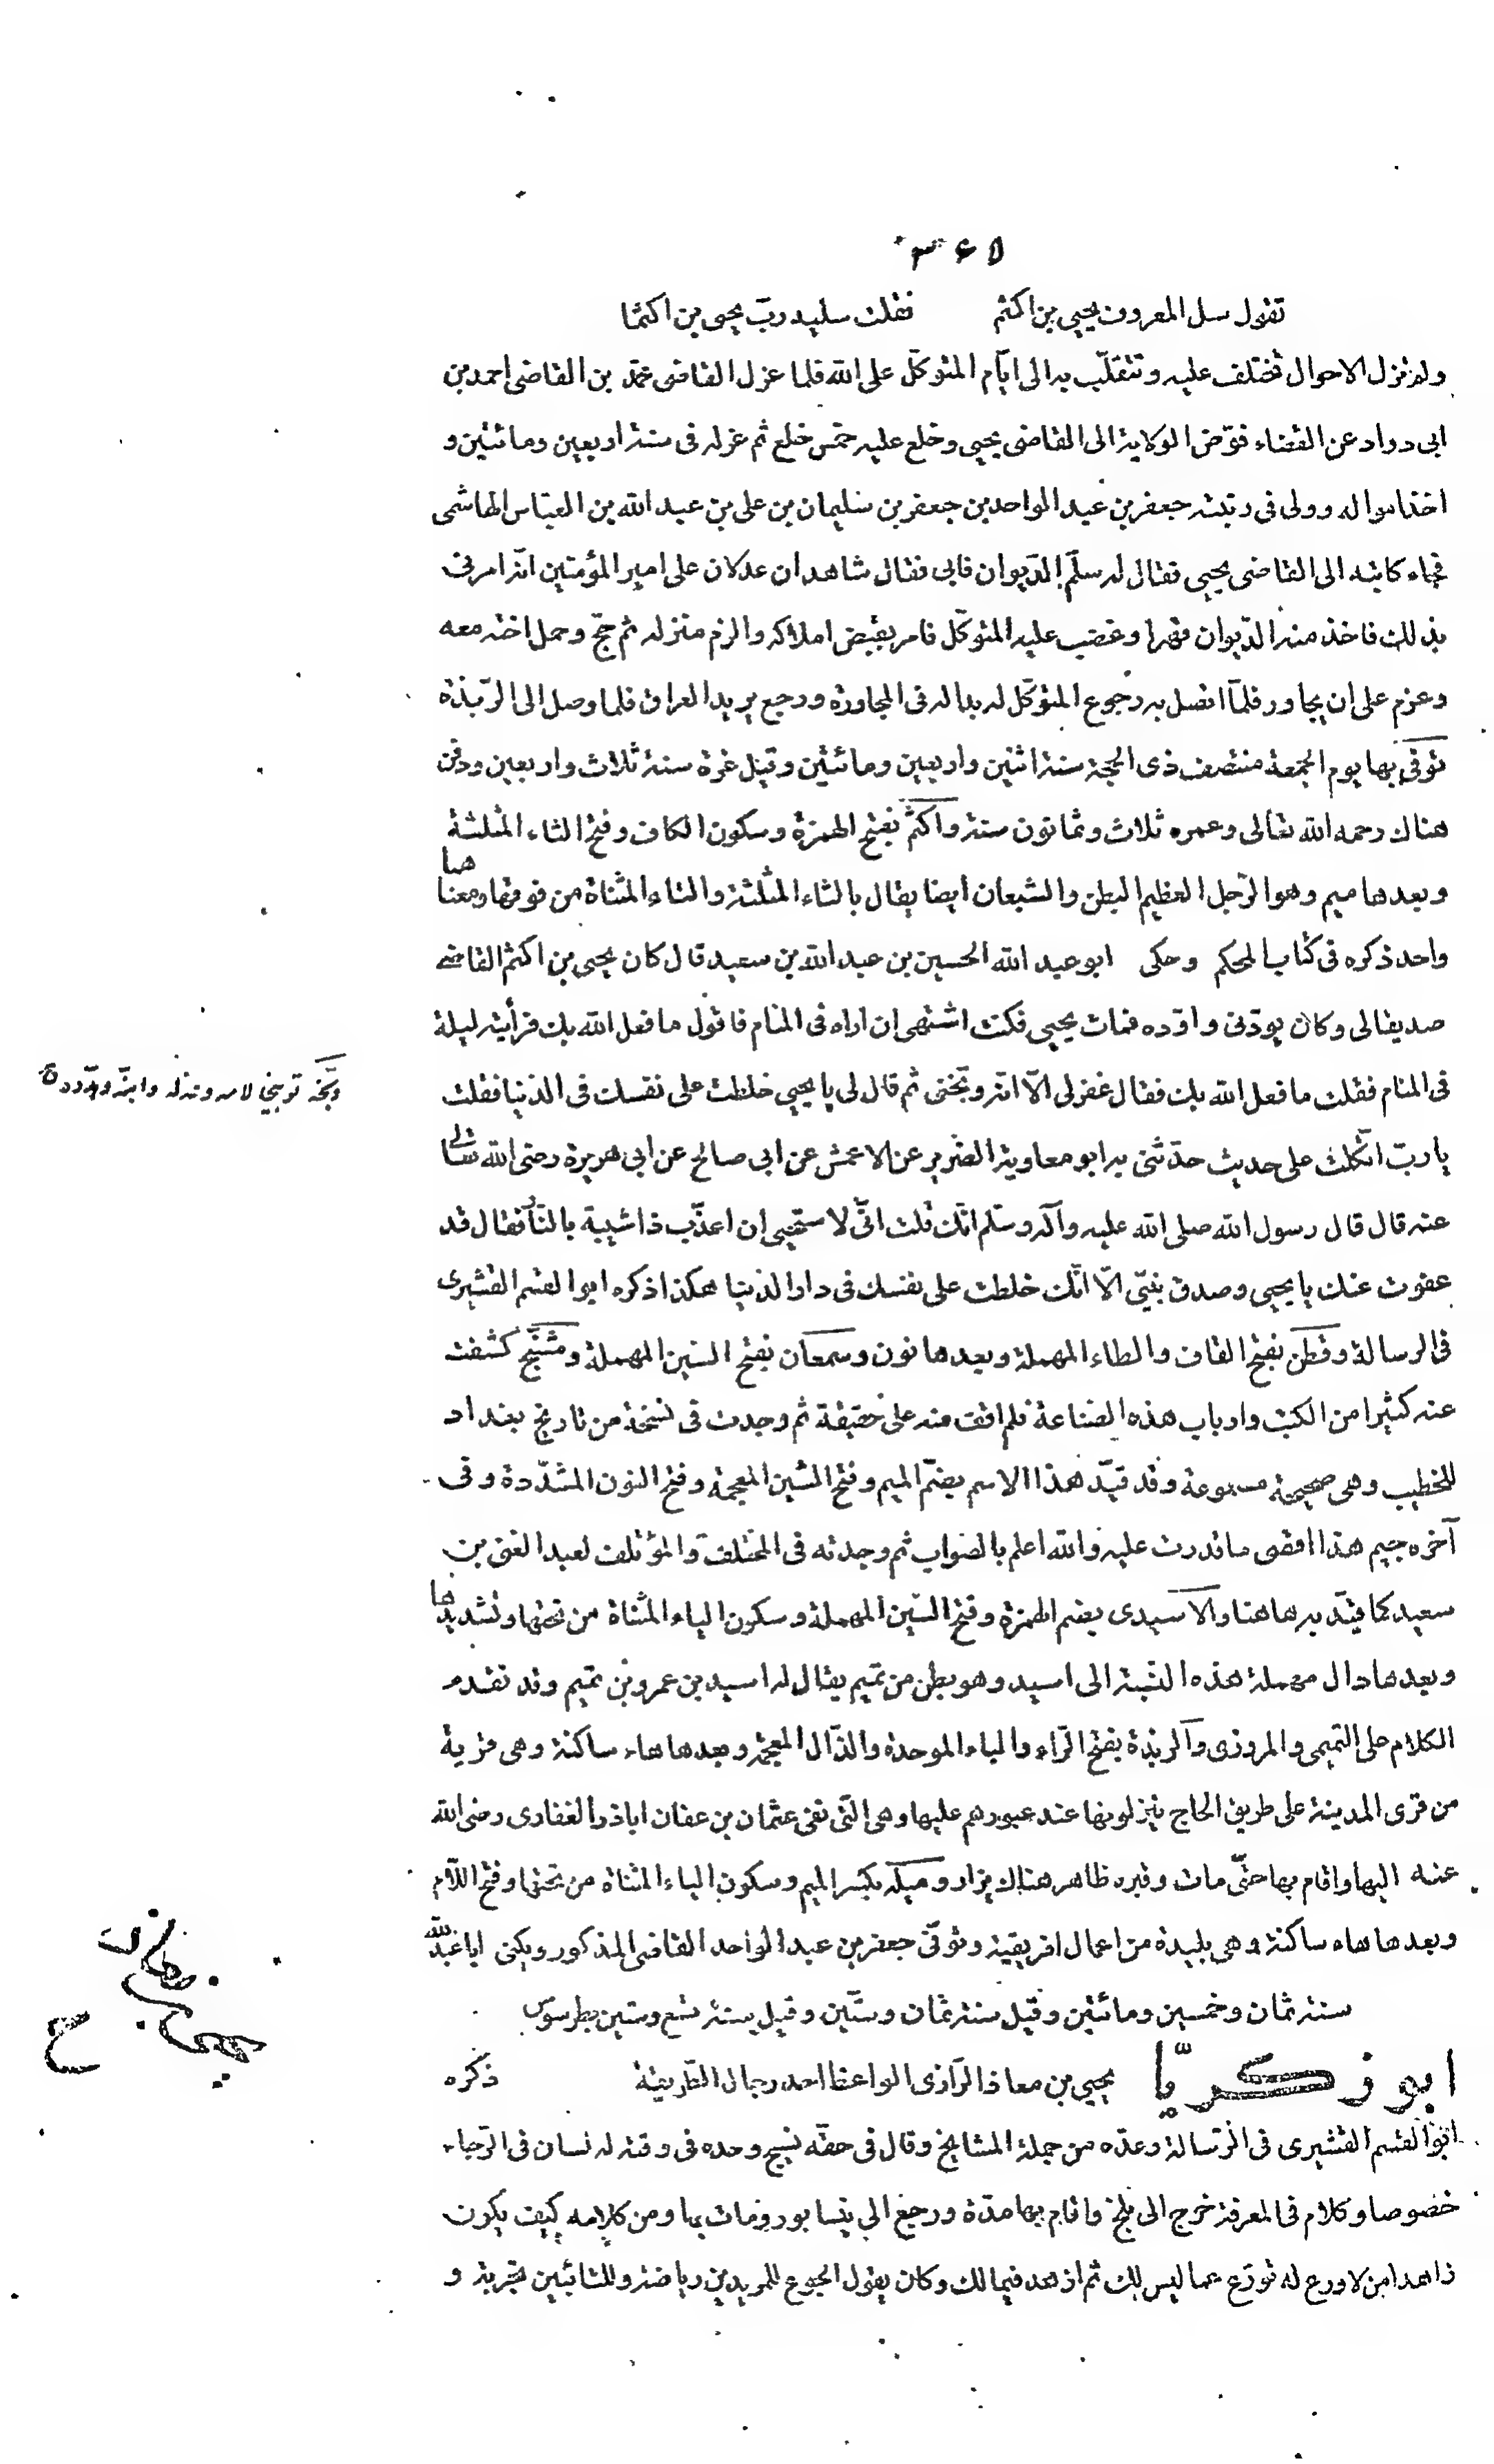 ٣٤٥
تقول سل المعروف يحيى بن اكثم فقلت سليه ربّ يحيى بن اكثما
ولم تزل الاحوال تختلف عليه وتتقلّب به الى ايّام المتوكّل على الله فلما عزل القاضى محمّد بن القاضى احمد بن
ابى دواد عن القضاء فوّض الولاية الى القاضى يحيى وخلع عليه خمس خلع ثم عزله فى سنة اربعين ومائتين و
اخذ امواله وولى فى رتبته جعفر بن عبد الواحد بن جعفر بن سليمان بن على بن عبد الله بن العبّاس الهاشمى
فجاء كاتبه الى القاضى يحيى فقال له سلّم الدّيوان فابى فقال شاهدان عدلان على امير المؤمنين انّه امرنى
بذلك فاخذ منه الدّيوان قهرا وغضب عليه المتوكّل فامر بقبض املاكه والزم منزله ثم حجّ وحمل اخته معه
وعزم على ان يجاور فلمّا اتصل به رجوع المتوكّل له بدا له فى المجاورة ورجع يريد العراق فلما وصل الى الرّبذة
توفّى بها يوم الجمعة منتصف ذى الحجة سنة اثنين واربعين ومائتين وقيل غرة سنة ثلاث واربعين ودفن
هناك رحمه الله تعالى وعمره ثلاث وثمانون سنة واكثم بفتح الهمزة وسكون الكاف وفتح الثاء المثلثة
وبعدها ميم وهو الرّجل العظيم البطن والشبعان ايضا يقال بالثاء المثلثة والتاء المثناة من فوقها ومعناها
واحد ذكره فى كتاب المحكم وحكى ابو عبد الله الحسين بن عبد الله بن سعيد قال كان يحيى بن اكثم القاضى
صديقا لى وكان يودّنى واودّه فمات يحيى فكنت اشتهى ان اراه فى المنام فاقول ما فعل الله بك فرأيته ليلة
فى المنام فقلت ما فعل الله بك فقال غفر لى الّا انّه وبّخنى ثم قال لى يا يحيى خلطت على نفسك فى الدّنيا فقلت
وبّخه توبيخا لامه وعذله وانّبه وهدّده
يا ربّ اتّكلت على حديث حدّثنى به ابو معاوية الضّرير عن الاعمش عن ابى صالح عن ابى هريرة رضى الله تعالى
عنه قال قال رسول الله صلى الله عليه وآله وسلّم انّك قلت انّى لا ستحيى ان اعذّب ذا شيبة بالنّار فقال قد
عفوت عنك يا يحيى وصدق نبيّى الّا انّك خلطت على نفسك فى دار الدّنيا هكذا ذكره ابو القسم القشيرى
فى الرسالة وقطن بفتح القاف والطاء المهملة وبعدها نون وسمعان بفتح السّين المهملة ومشنّج كشفت
عنه كثيرا من الكتب وارباب هذه الصّناعة فلم اقف منه على حقيقة ثم وجدت فى نسخة من تاريخ بغداد
للخطيب وهى صحيحة مسموعة وقد قيّد هذا الاسم بضمّ الميم وفتح الشين المعجمة وفتح النون المشدّدة وفى
آخره جيم هذا اقصى ما قدرت عليه والله اعلم بالصّواب ثم وجدته فى المختلف والمؤتلف لعبد الغنى بن
سعيد كما قيّد به هاهنا والاسيدى بضم الهمزة وفتح السّين المهملة وسكون الياء المثناة من تحتها وتشديدها
وبعدها دال مهملة هذه النّسبة الى اسيد وهو بطن من تميم يقال له اسيد بن عمرو بن تميم وقد تقدم
الكلام على التميمى والمروزى والربذة بفتح الرّاء والباء الموحدة والذّال المعجمة وبعدها هاء ساكنة وهى قرية
من قرى المدينة على طريق الحاج ينزلونها عند عبورهم عليها وهى الّتى نفى عثمان بن عفان اباذر الغفارى رضى الله
عنه اليها واقام بها حتّى مات وقبره ظاهر هناك يزار وميله بكسر الميم وسكون الياء المثناة من تحتها وفتح اللّام
وبعدها هاء ساكنة وهى بليدة من اعمال افريقية وتوفّى جعفر بن عبد الواحد القاضى المذكور ويكنى ابا عبد الله
سنة ثمان وخمسين ومائتين وقيل سنة ثمان وستّين وقيل سنة تسع وستين بطرسوس
ابو زكريّا يحيى بن معاذ الرّازى الواعظ احد رجال الطّريقة ذكره
يحيى بن معاذ
ابو القسم القشيرى فى الرّسالة وعدّه من جملة المشايخ وقال فى حقّه نسيج وحده فى وقته له لسان فى الرّجاء
خصوصا وكلام فى المعرفة خرج الى بلخ واقام بها مدّة ورجع الى نيسابور ومات بها ومن كلامه كيف يكون
زاهدا من لا ورع له تورّع عما ليس لك ثم ازهد فيما لك وكان يقول الجوع للمريدين رياضة وللتائبين تجربة و